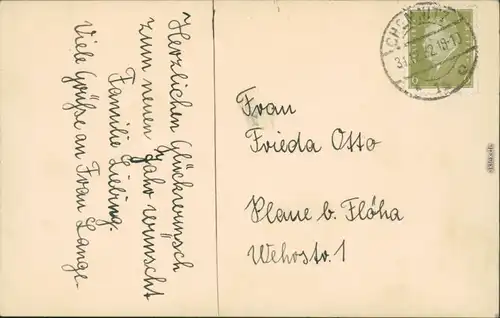 Herzlichen Glückwunsch
zum neuen Jahr wünscht
Familie Liebing.
Viele Grüße an Frau Lange.
Frau
Frieda Otto
Plaue b. Flöha
Wehrstr. 1
CHEMNITZ